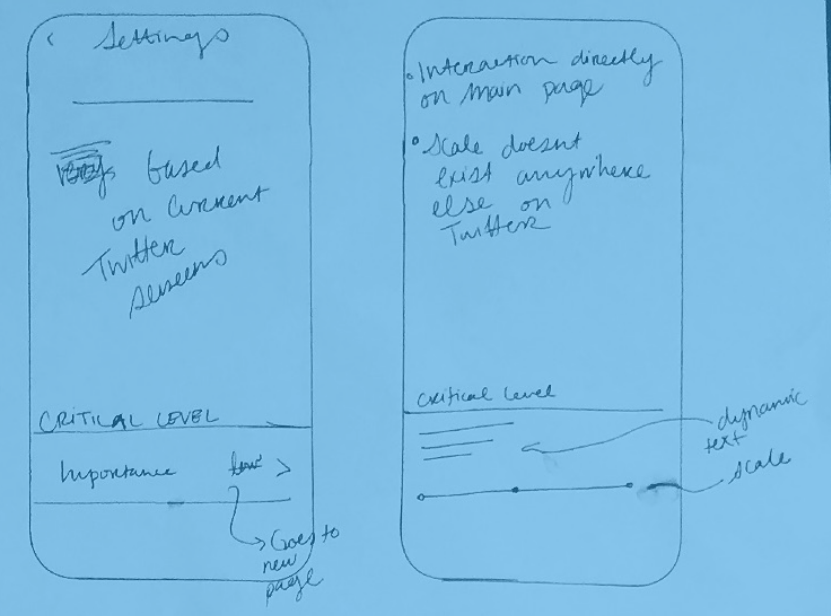 < Settings
based
on current
Twitter
screens
CRITICAL LEVEL
Importance low >
Goes to
new
page
• Interaction directly
on main page
• Scale doesnt
exist anywhere
else on
Twitter
Critical Level
dynamic
text
scale